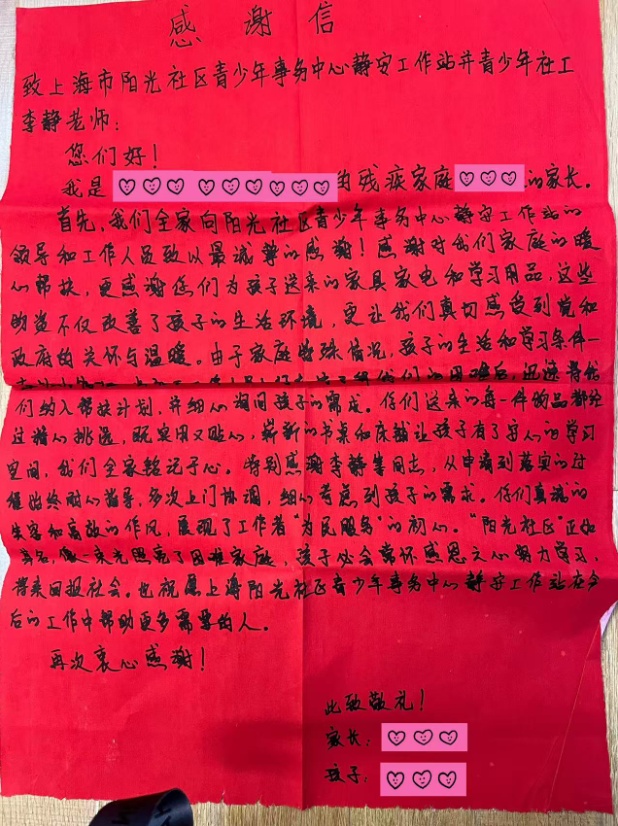 感谢信
致上海市阳光社区青少年事务中心静安工作站并青少年社工
李静老师：
您们好！
我是 的残疾家庭 的家长。
首先，我们全家向阳光社区青少年事务中心静安工作站的
领导和工作人员致以最诚挚的感谢！感谢对我们家庭的暖
心帮扶，更感谢你们为孩子送来的家具家电和学习用品，这些
助资不仅改善了孩子的生活环境，更让我们真切感受到党和
政府的关怀与温暖。由于家庭特殊情况，孩子的生活和学习条件一
迅速将我
们纳入帮扶计划，并细心询问孩子的需求。你们送来的每一件物品都经
过精心挑选，既实用又贴心，崭新的书桌和床铺让孩子有了安心的学习
空间，我们全家铭记于心。特别感谢李静等同志，从申请到落实的过
程始终耐心指导，多次上门协调，细心考虑到孩子的需求。你们真诚的
笑容和高效的作风，展现了工作者“为民服务”的初心。“阳光社区”正如
其名，像一束光照亮了困难家庭，孩子必会常怀感恩之心努力学习，
将来回报社会。也祝愿上海阳光社区青少年事务中心静安工作站在今
后的工作中帮助更多需要的人。
再次衷心感谢！
此致敬礼！
家长：
孩子：